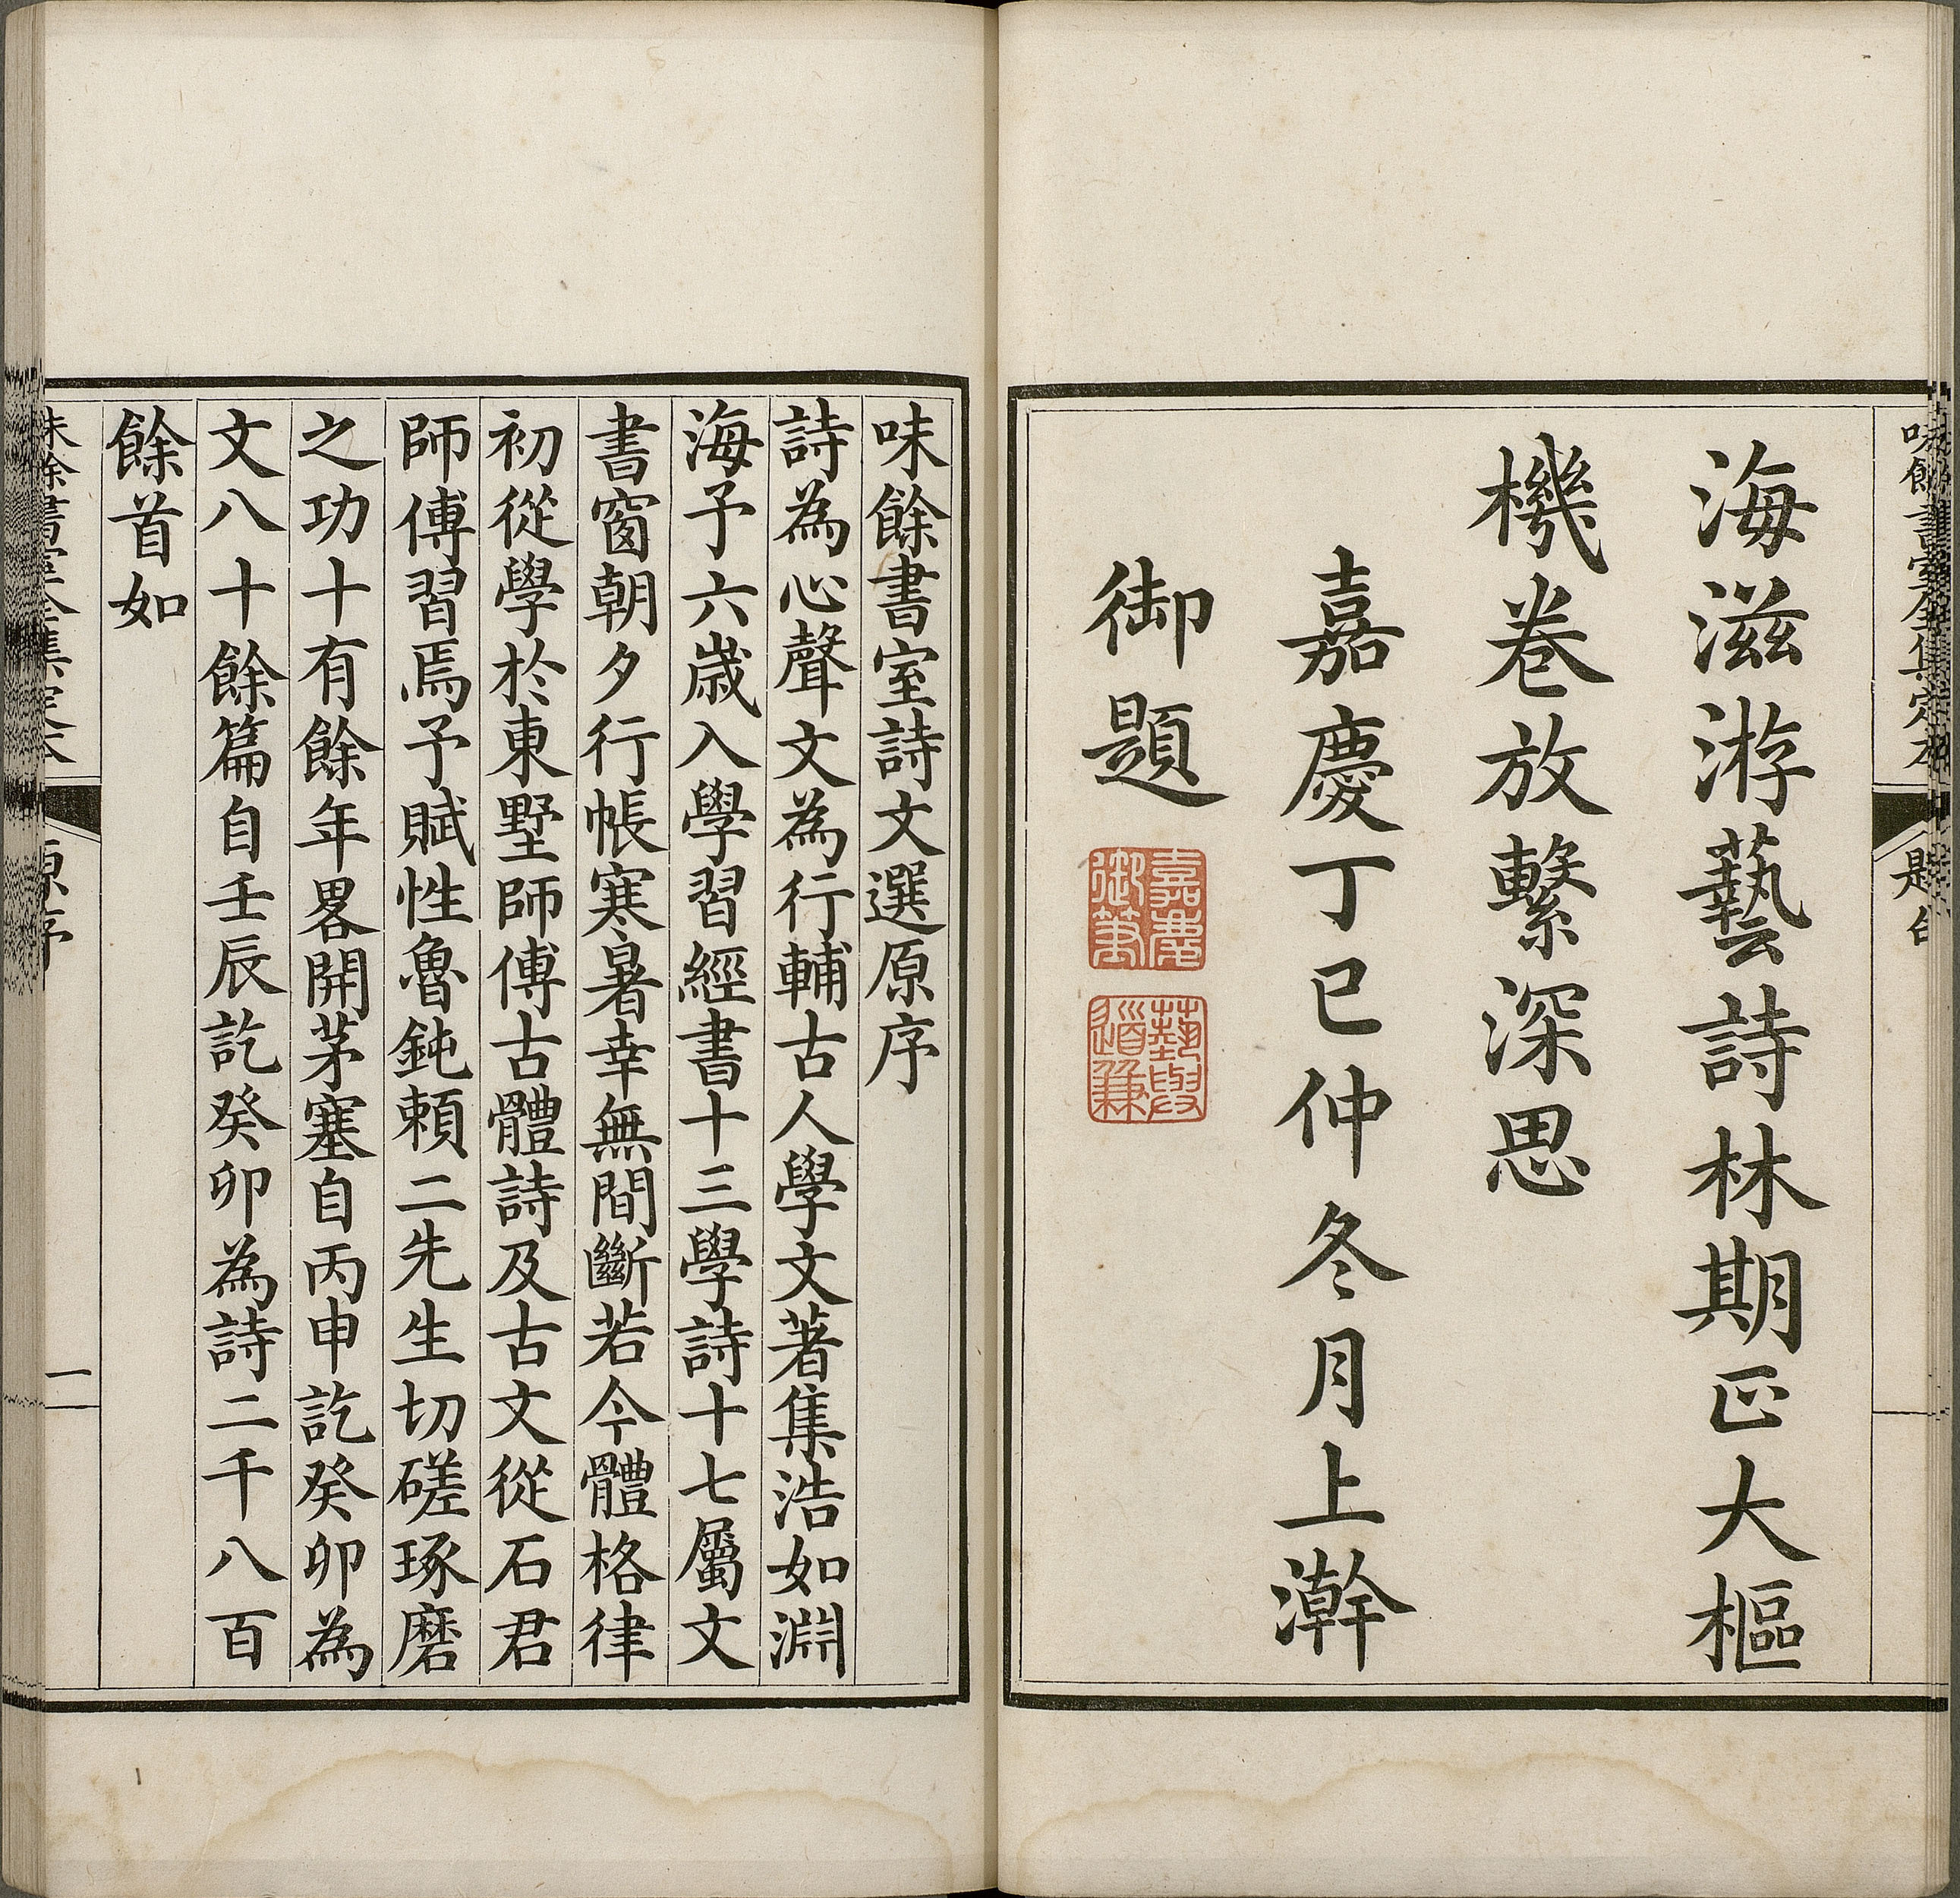 味餘書室全集定本
題
海滋游藝詩林期正大樞
機卷放繫深思
嘉慶丁巳仲冬月上澣
御題
嘉慶御筆
味餘書室詩文選原序
詩為心聲文為行輔古人學文著集浩如淵
海予六歲入學習經書十三學詩十七屬文
書窗朝夕行帳寒暑幸無間斷若今體格律
初從學於東墅師傅古體詩及古文從石君
師傅習焉予賦性魯鈍賴二先生切磋琢磨
之功十有餘年畧開茅塞自丙申訖癸卯為
文八十餘篇自壬辰訖癸卯為詩二千八百
餘首如
味餘書室全集定本
原序
一